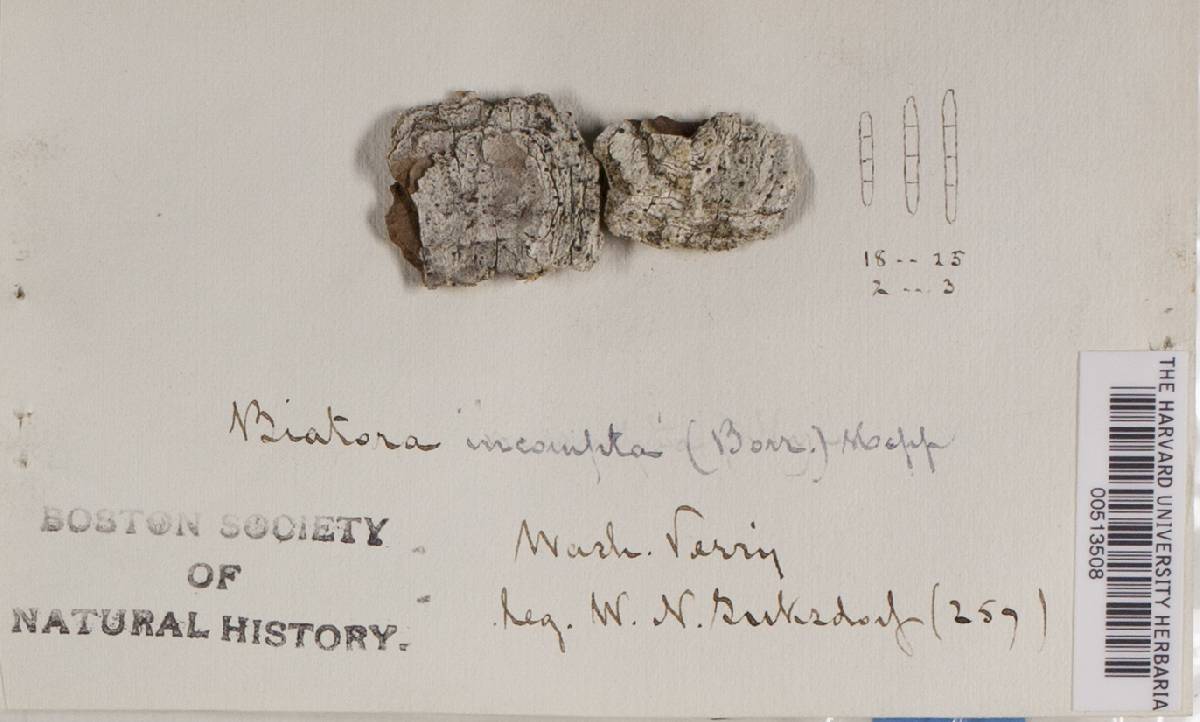 18 -- 25
2 -- 3
Biatora incompta (Borr.) Hepp
Wash. Terriy
Leg. W. N. Suksdorf (259)
BOSTON SOCIETY
OF
NATURAL HISTORY.
THE HARVARD UNIVERSITY HERBARIA
00513508